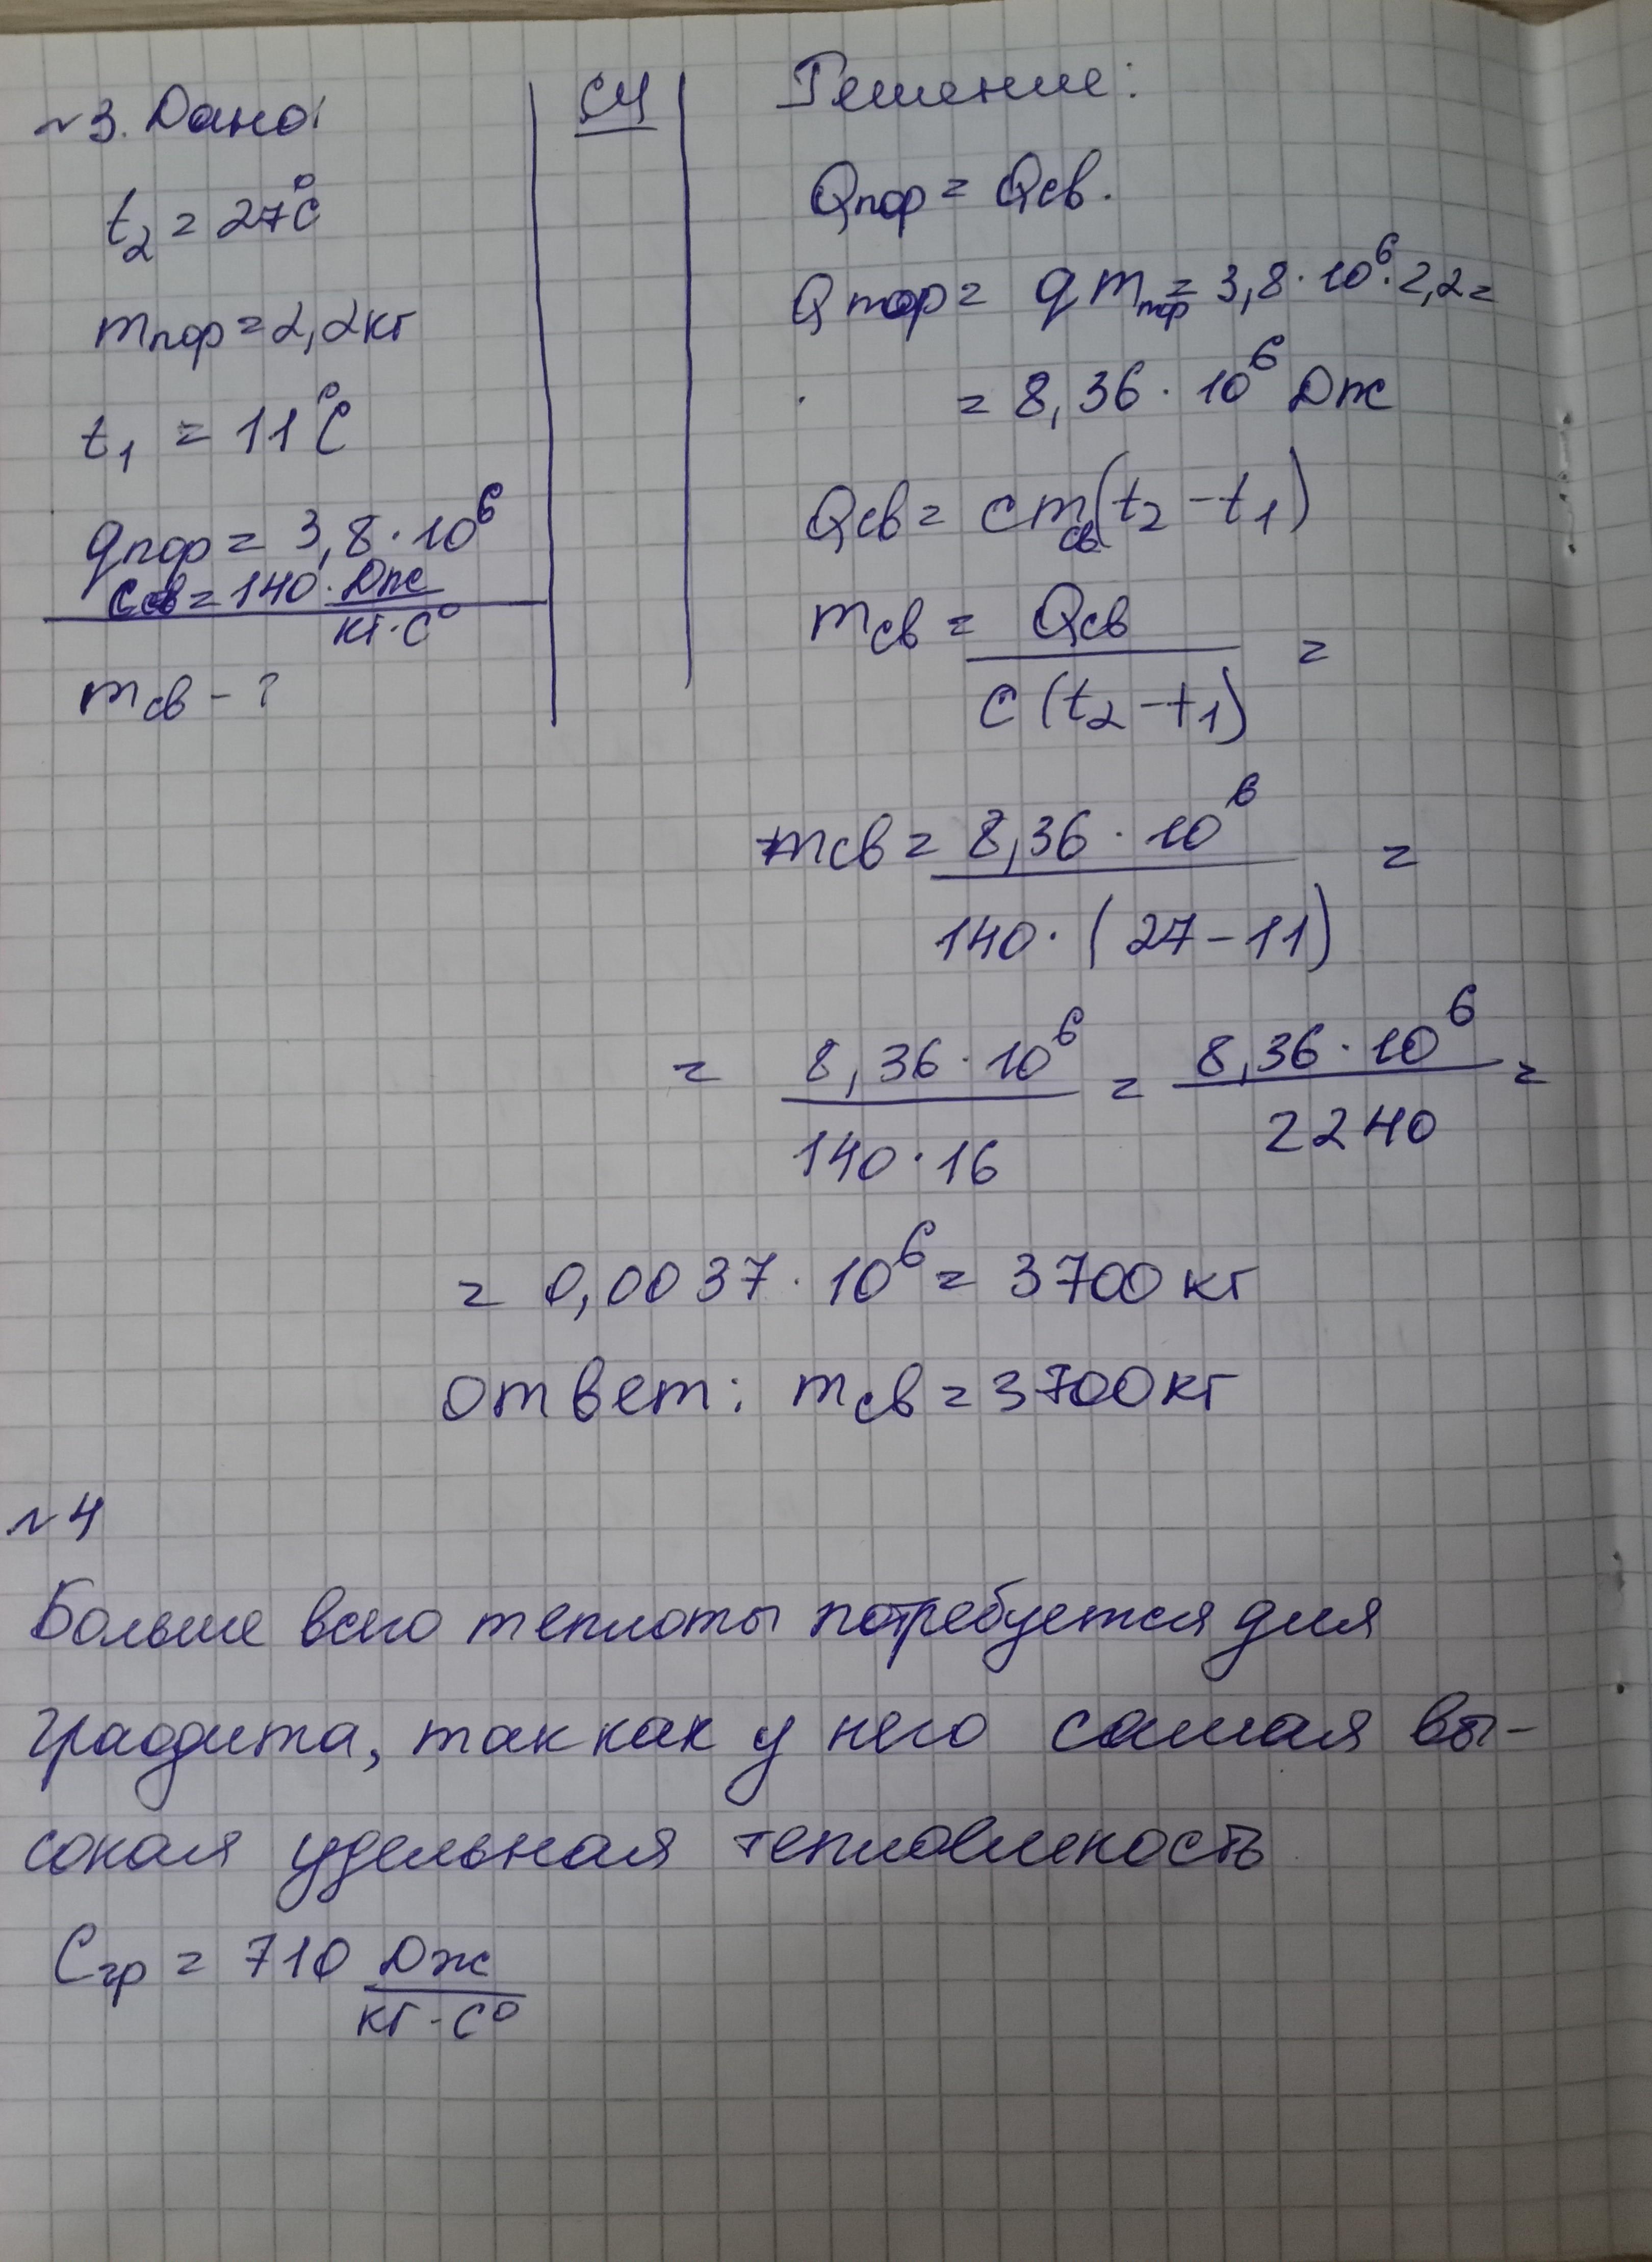 №3. Дано:
t₂ = 27°C
mпор = 2,2кг
t₁ = 11°C
qпор = 3,8·10⁶
Cсв = 140 Дж/кг·C°
mсв - ?
СИ
Решение:
Qпор = Qсв.
Qпор = qmпор = 3,8·10⁶·2,2 =
= 8,36·10⁶ Дж
Qсв = cmсв(t₂ - t₁)
mсв = Qсв/c(t₂ - t₁) =
mсв = 8,36·10⁶/140·(27-11) =
= 8,36·10⁶/140·16 = 8,36·10⁶/2240 =
= 0,0037·10⁶ = 3700 кг
ответ: mсв = 3700кг
№4
Больше всего теплоты потребуется для
графита, так как у него самая вы-
сокая удельная теплоемкость
Cгр = 710 Дж/кг·C°